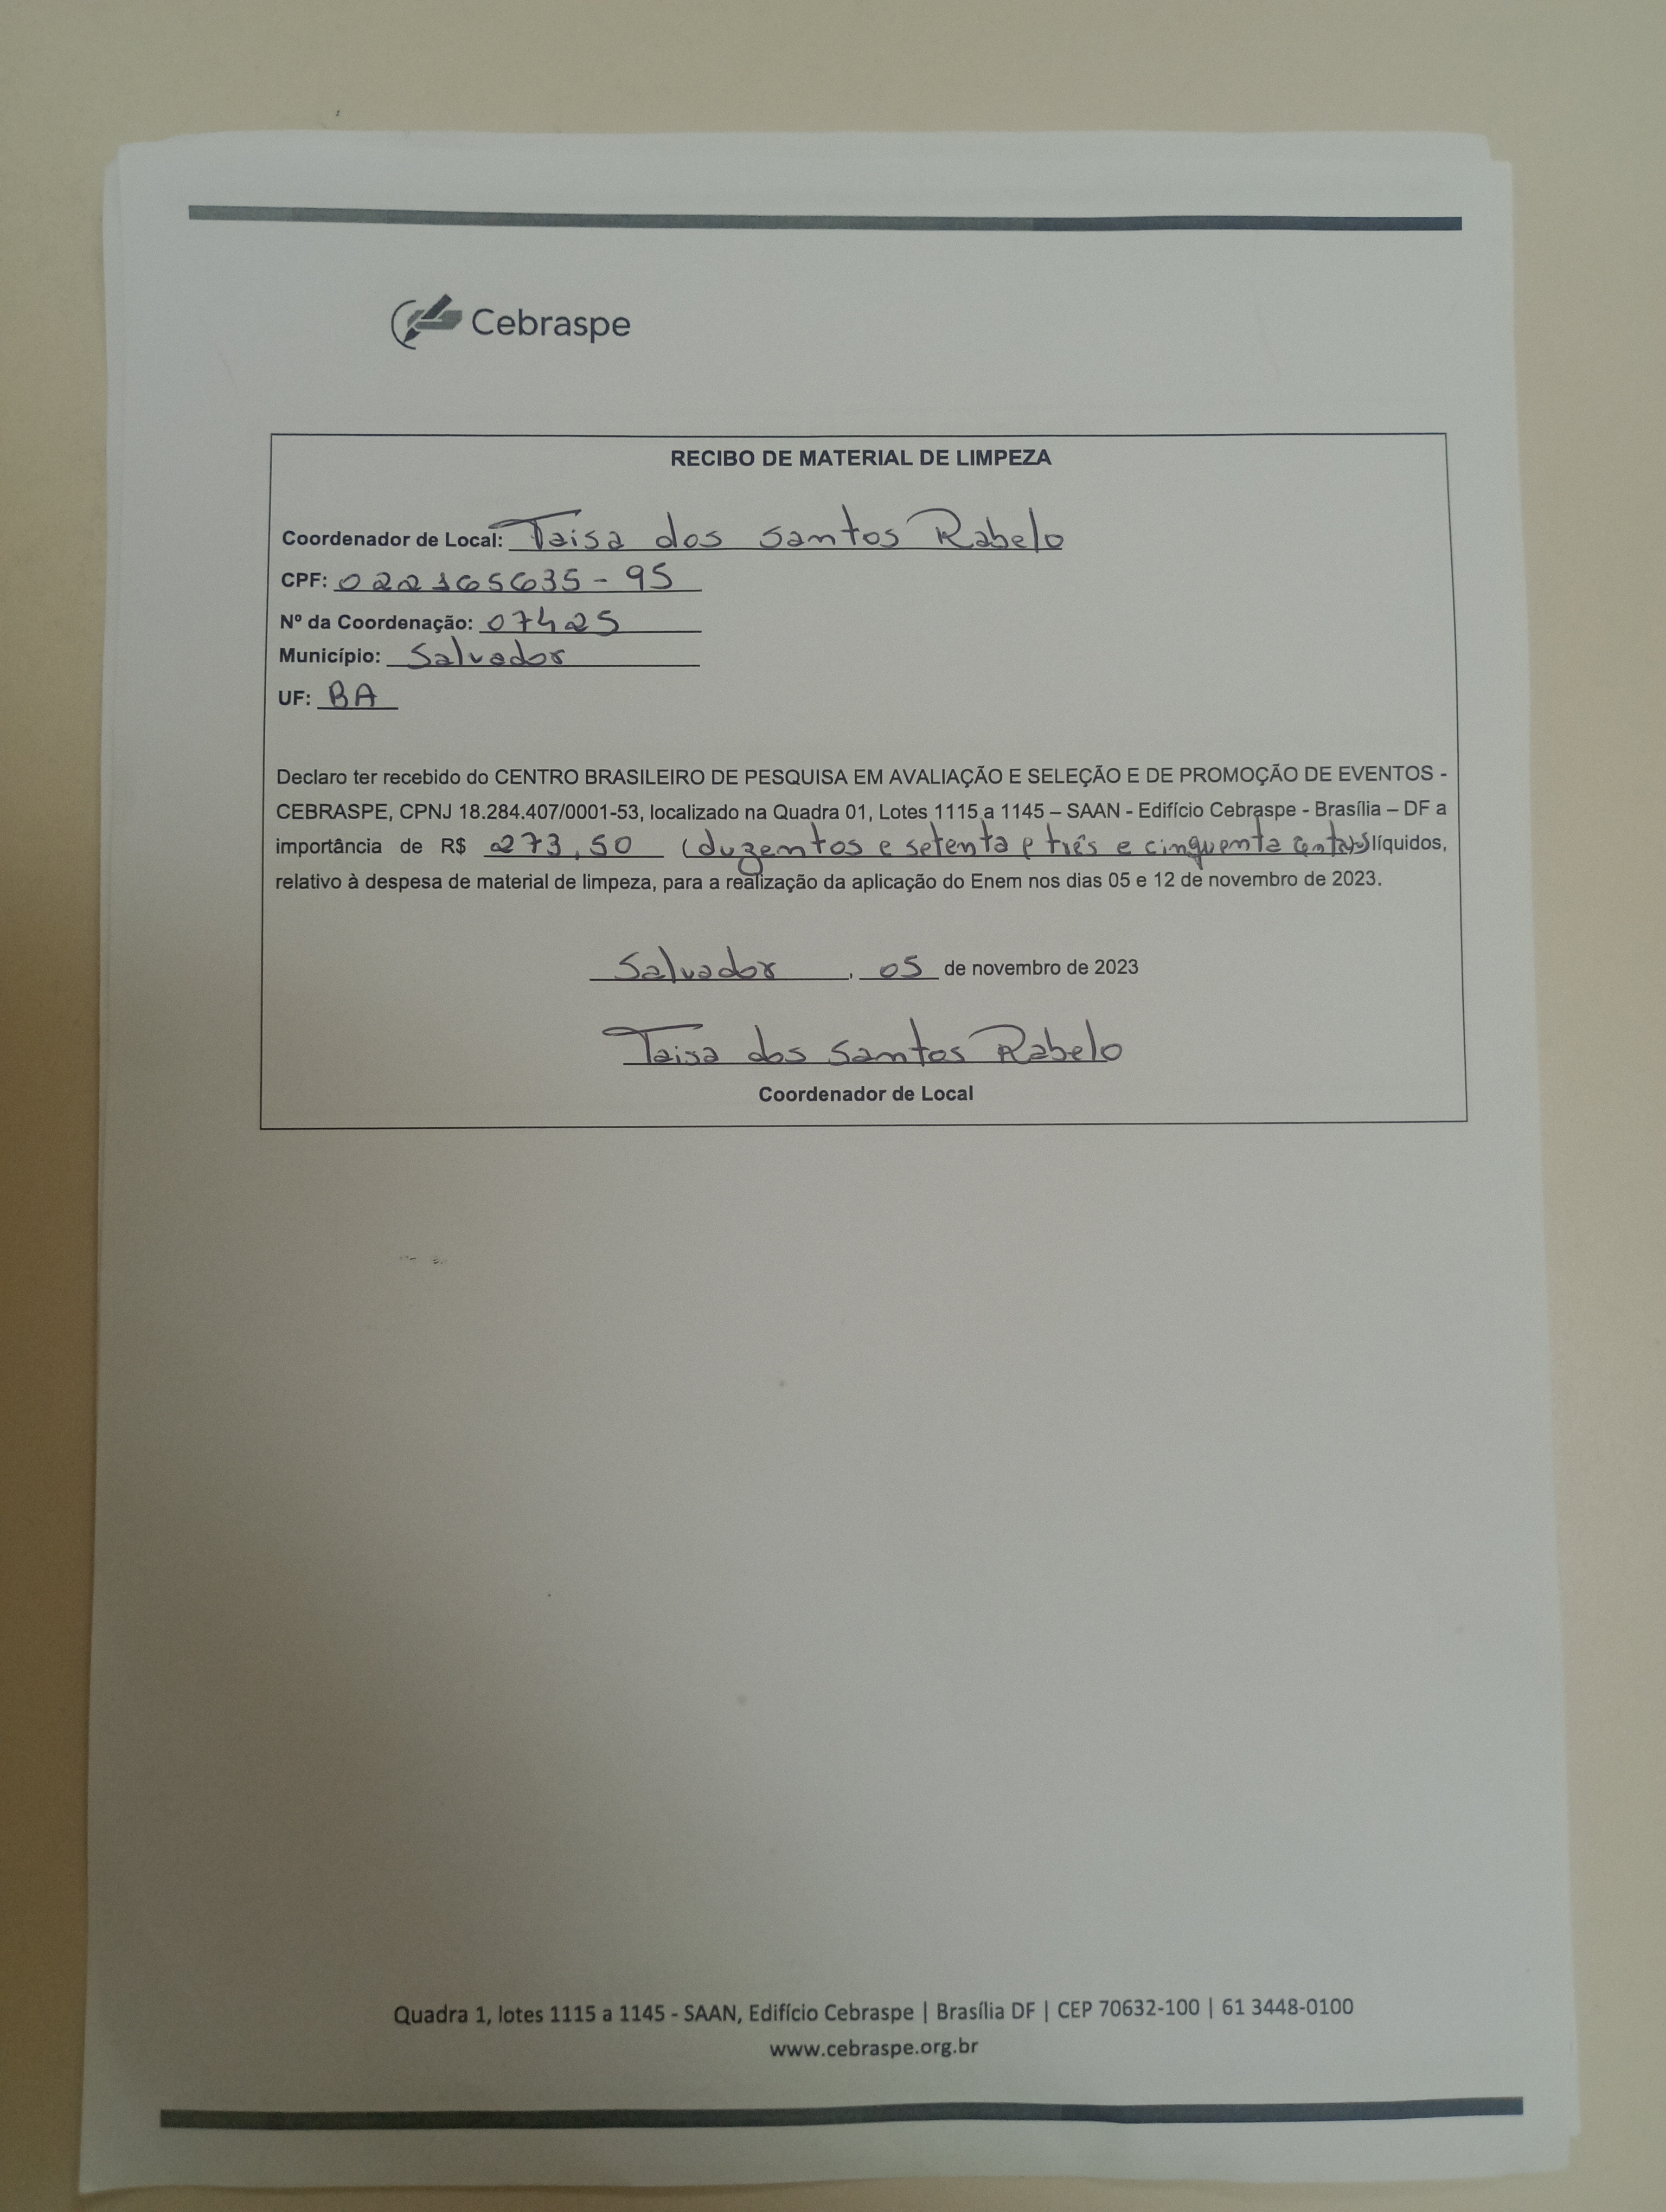 Cebraspe
RECIBO DE MATERIAL DE LIMPEZA
Coordenador de Local: Taisa dos santos Rabelo
CPF: 022165635-95
Nº da Coordenação: 07425
Município: Salvador
UF: BA
Declaro ter recebido do CENTRO BRASILEIRO DE PESQUISA EM AVALIAÇÃO E SELEÇÃO E DE PROMOÇÃO DE EVENTOS -
CEBRASPE, CPNJ 18.284.407/0001-53, localizado na Quadra 01, Lotes 1115 a 1145 – SAAN - Edifício Cebraspe - Brasília – DF a
importância de R$ 273,50 (duzentos e setenta e três e cinquenta líquidos,
relativo à despesa de material de limpeza, para a realização da aplicação do Enem nos dias 05 e 12 de novembro de 2023.
Salvador, 05 de novembro de 2023
Taisa dos santos Rabelo
Coordenador de Local
Quadra 1, lotes 1115 a 1145 - SAAN, Edifício Cebraspe | Brasília DF | CEP 70632-100 | 61 3448-0100
www.cebraspe.org.br